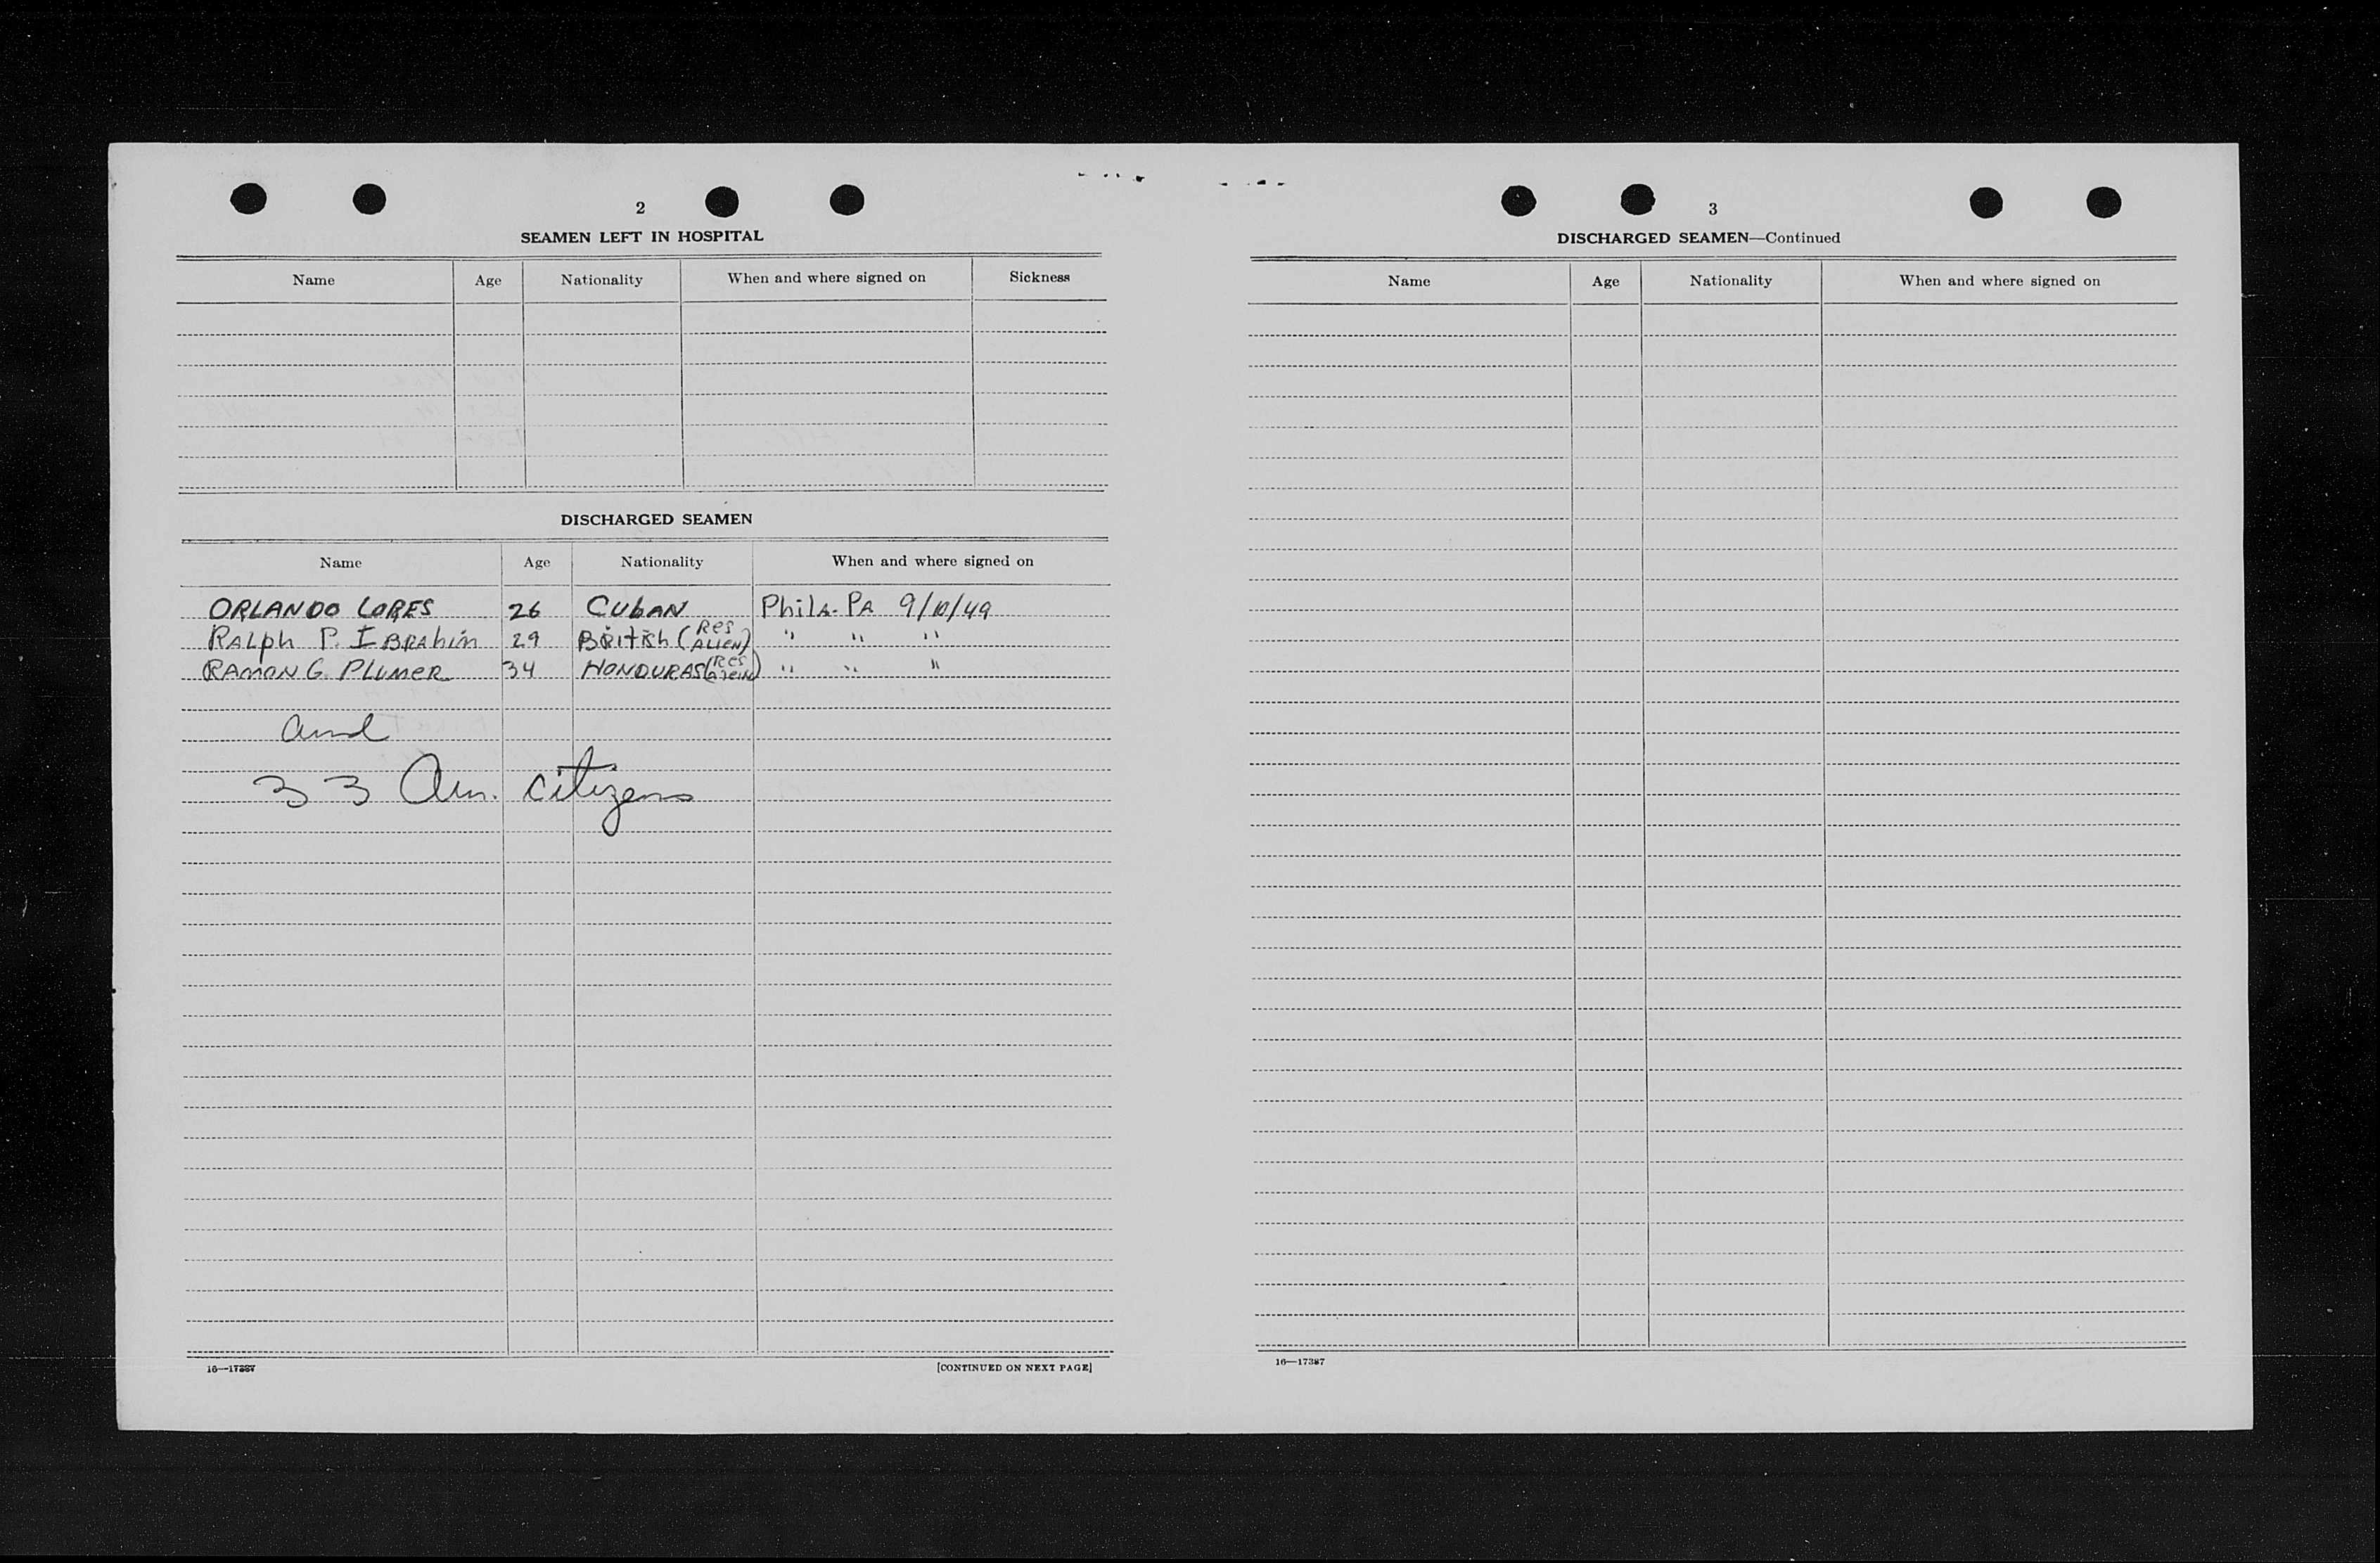 2
SEAMEN LEFT IN HOSPITAL
Name Age Nationality When and where signed on Sickness
DISCHARGED SEAMEN
Name Age Nationality When and where signed on
ORLANDO LORES 26 CUBAN Phila. PA 9/10/49
RALph P. IBRAhim 29 BRitish (Res ALIEN) " " "
RAMON G. PLUMER 34 HONDURAS (Res " " "
and
33 Am. citizens
16—17387
[CONTINUED ON NEXT PAGE]
3
DISCHARGED SEAMEN—Continued
Name Age Nationality When and where signed on
16—17387